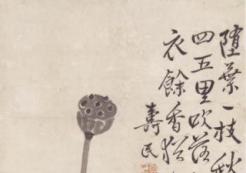 墮葉一枝秋
四五里吹落
衣餘香猶
壽民